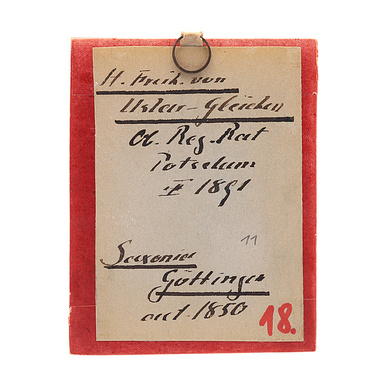 H. Freih. von
Uslar-Gleichen
Ob. Reg. Rat
Potsdam
1891
11
Saxonia
Göttingen
1850
18.